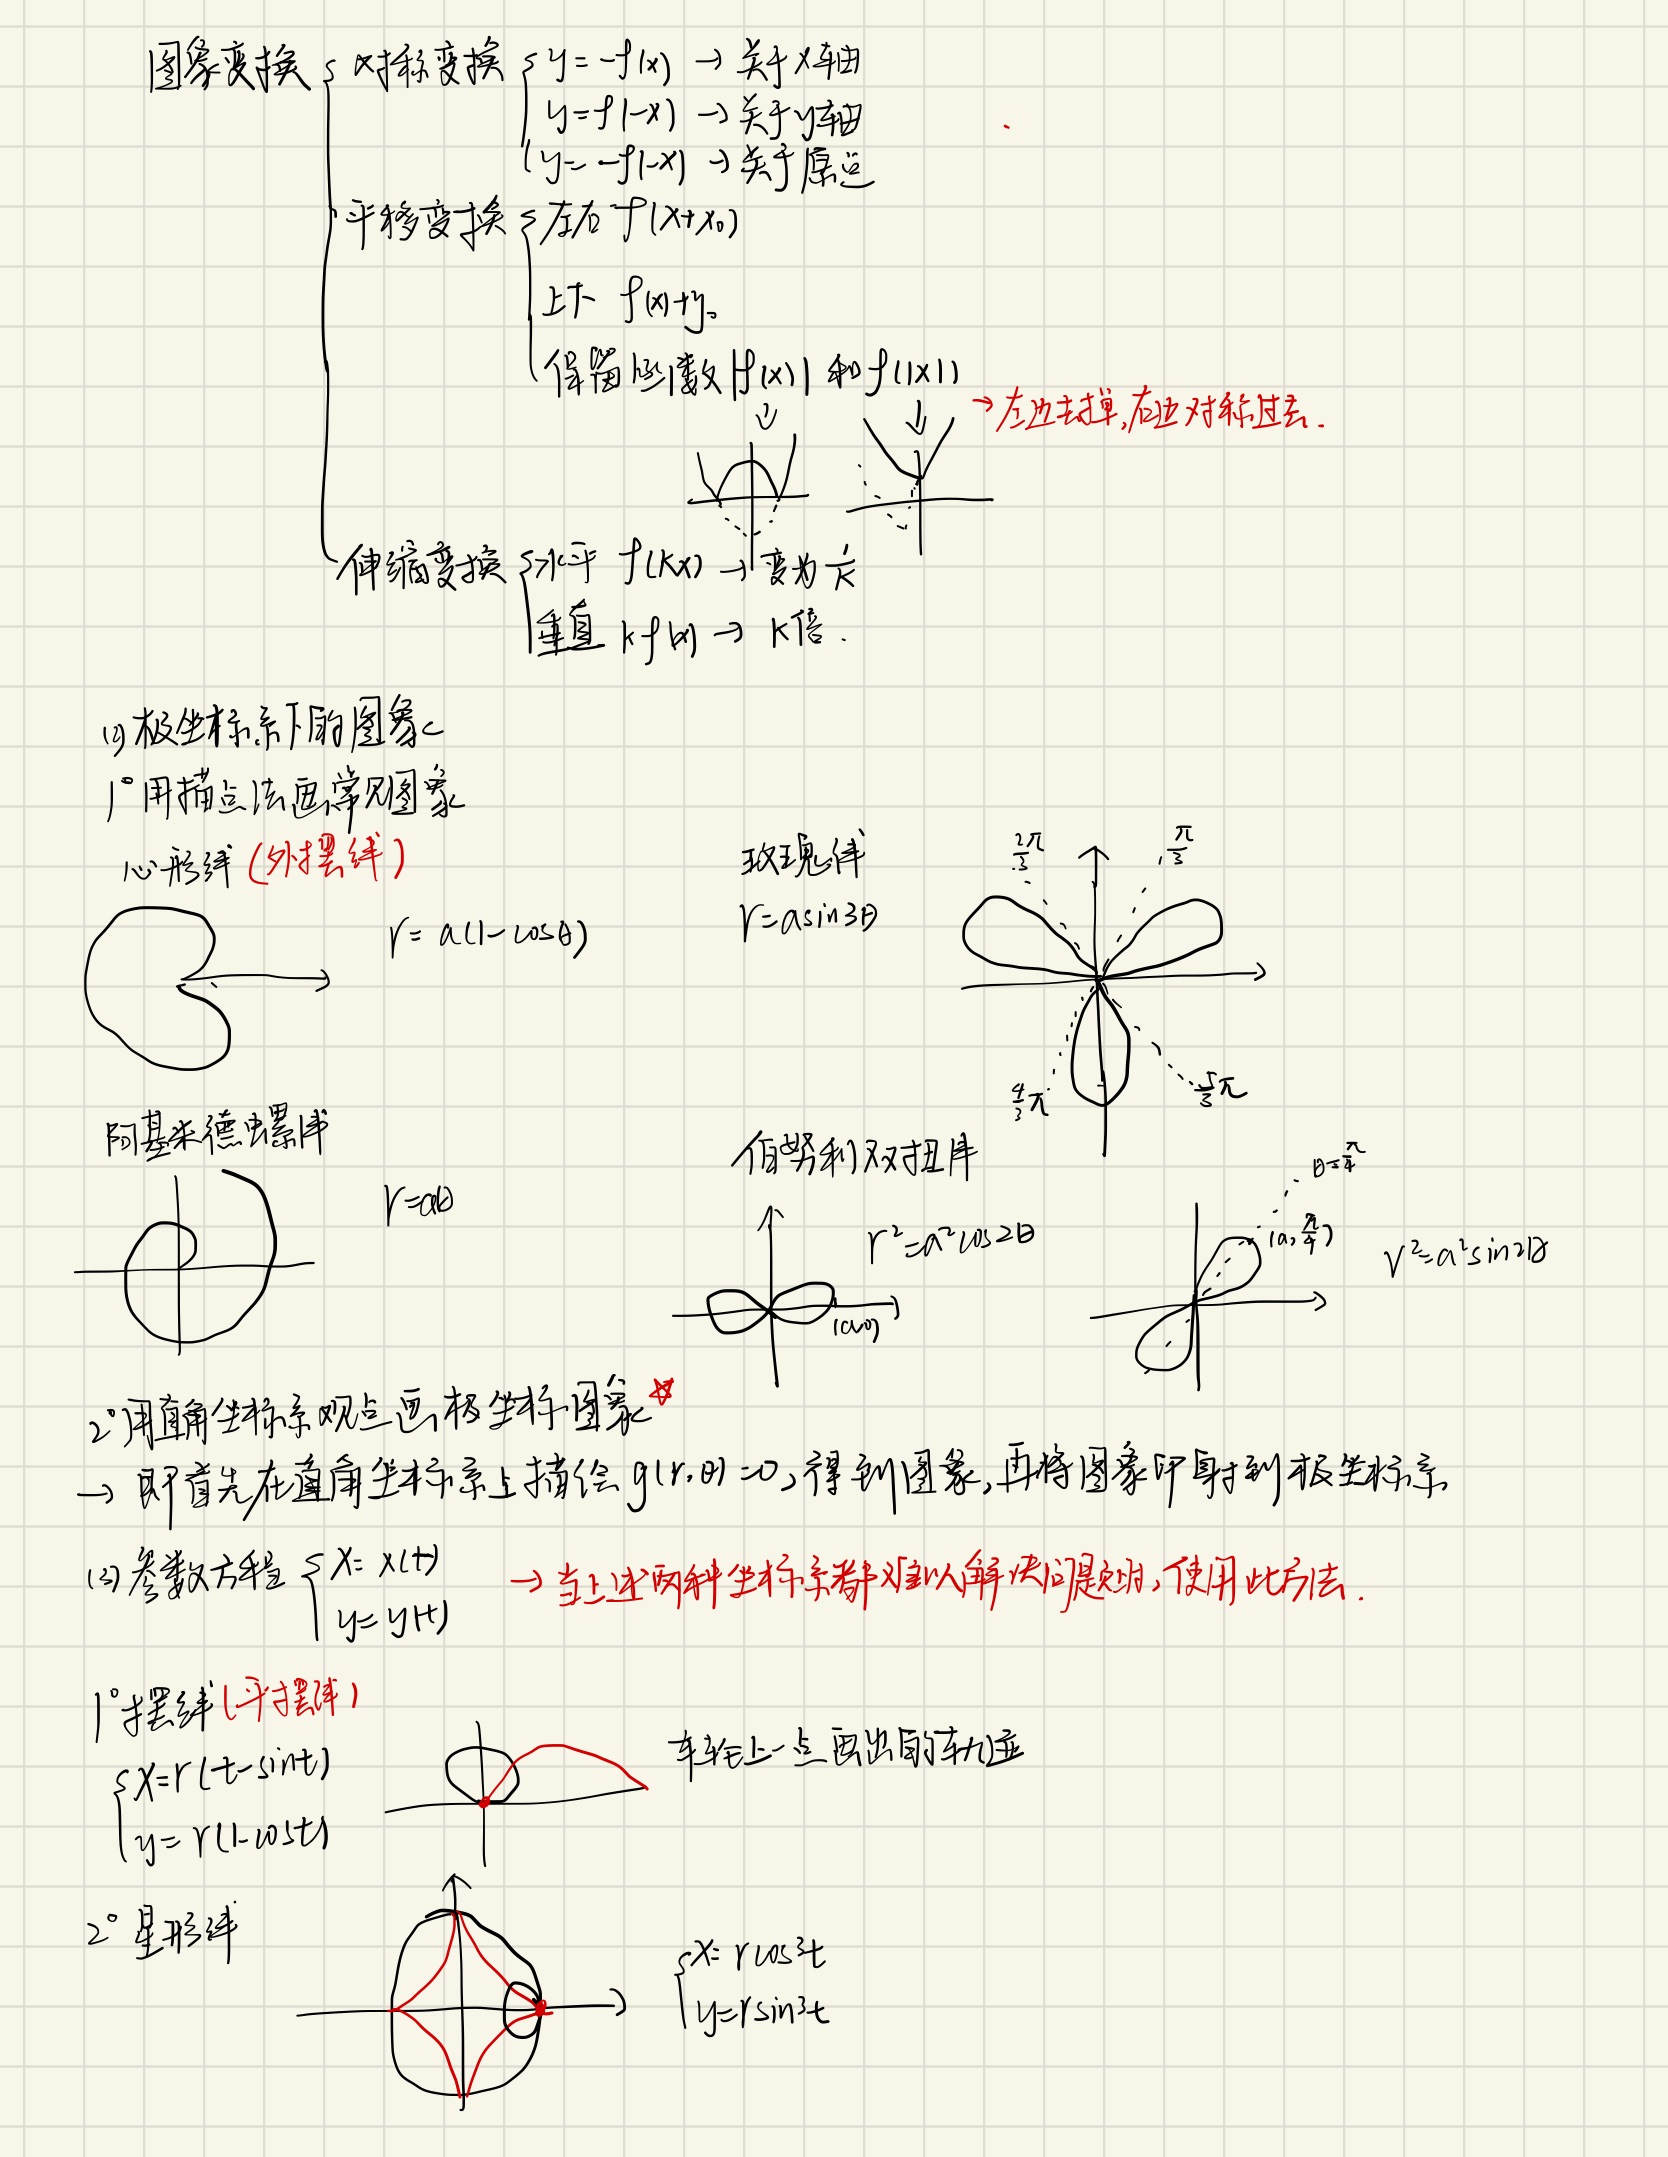 图象变换 { 对称变换 { y=-f(x) → 关于x轴
y=f(-x) → 关于y轴
y=-f(-x) → 关于原点
平移变换 { 左右 f(x+x₀)
上下 f(x)+y₀
保留 函数|f(x)| 和 f(|x|)
→左边去掉,右边对称过去.
伸缩变换 { 水平 f(kx) → 变为 1/k
垂直 kf(x) → k倍.
(2)极坐标系下的图象
1°用描点法画常见图象
心形线(外摆线)
r=a(1-cosθ)
玫瑰线
r=asin3θ
2π/3
π/3
4/3π
5/3π
阿基米德螺线
r=aθ
伯努利双扭线
r²=a²cos2θ
(a,0)
θ=π/4
(a,π/4)
r²=a²sin2θ
2°用直角坐标系观点画极坐标图象☆
→ 即首先在直角坐标系上描绘g(r,θ)=0,得到图象,再将图象印射到极坐标系
(3)参数方程 { x=x(t)
y=y(t)
→当上述两种坐标系都难以解决问题时,使用此方法.
1°摆线(平摆线)
{ x=r(t-sint)
y=r(1-cost)
车轮上一点画出的轨迹
2°星形线
{ x=rcos³t
y=rsin³t